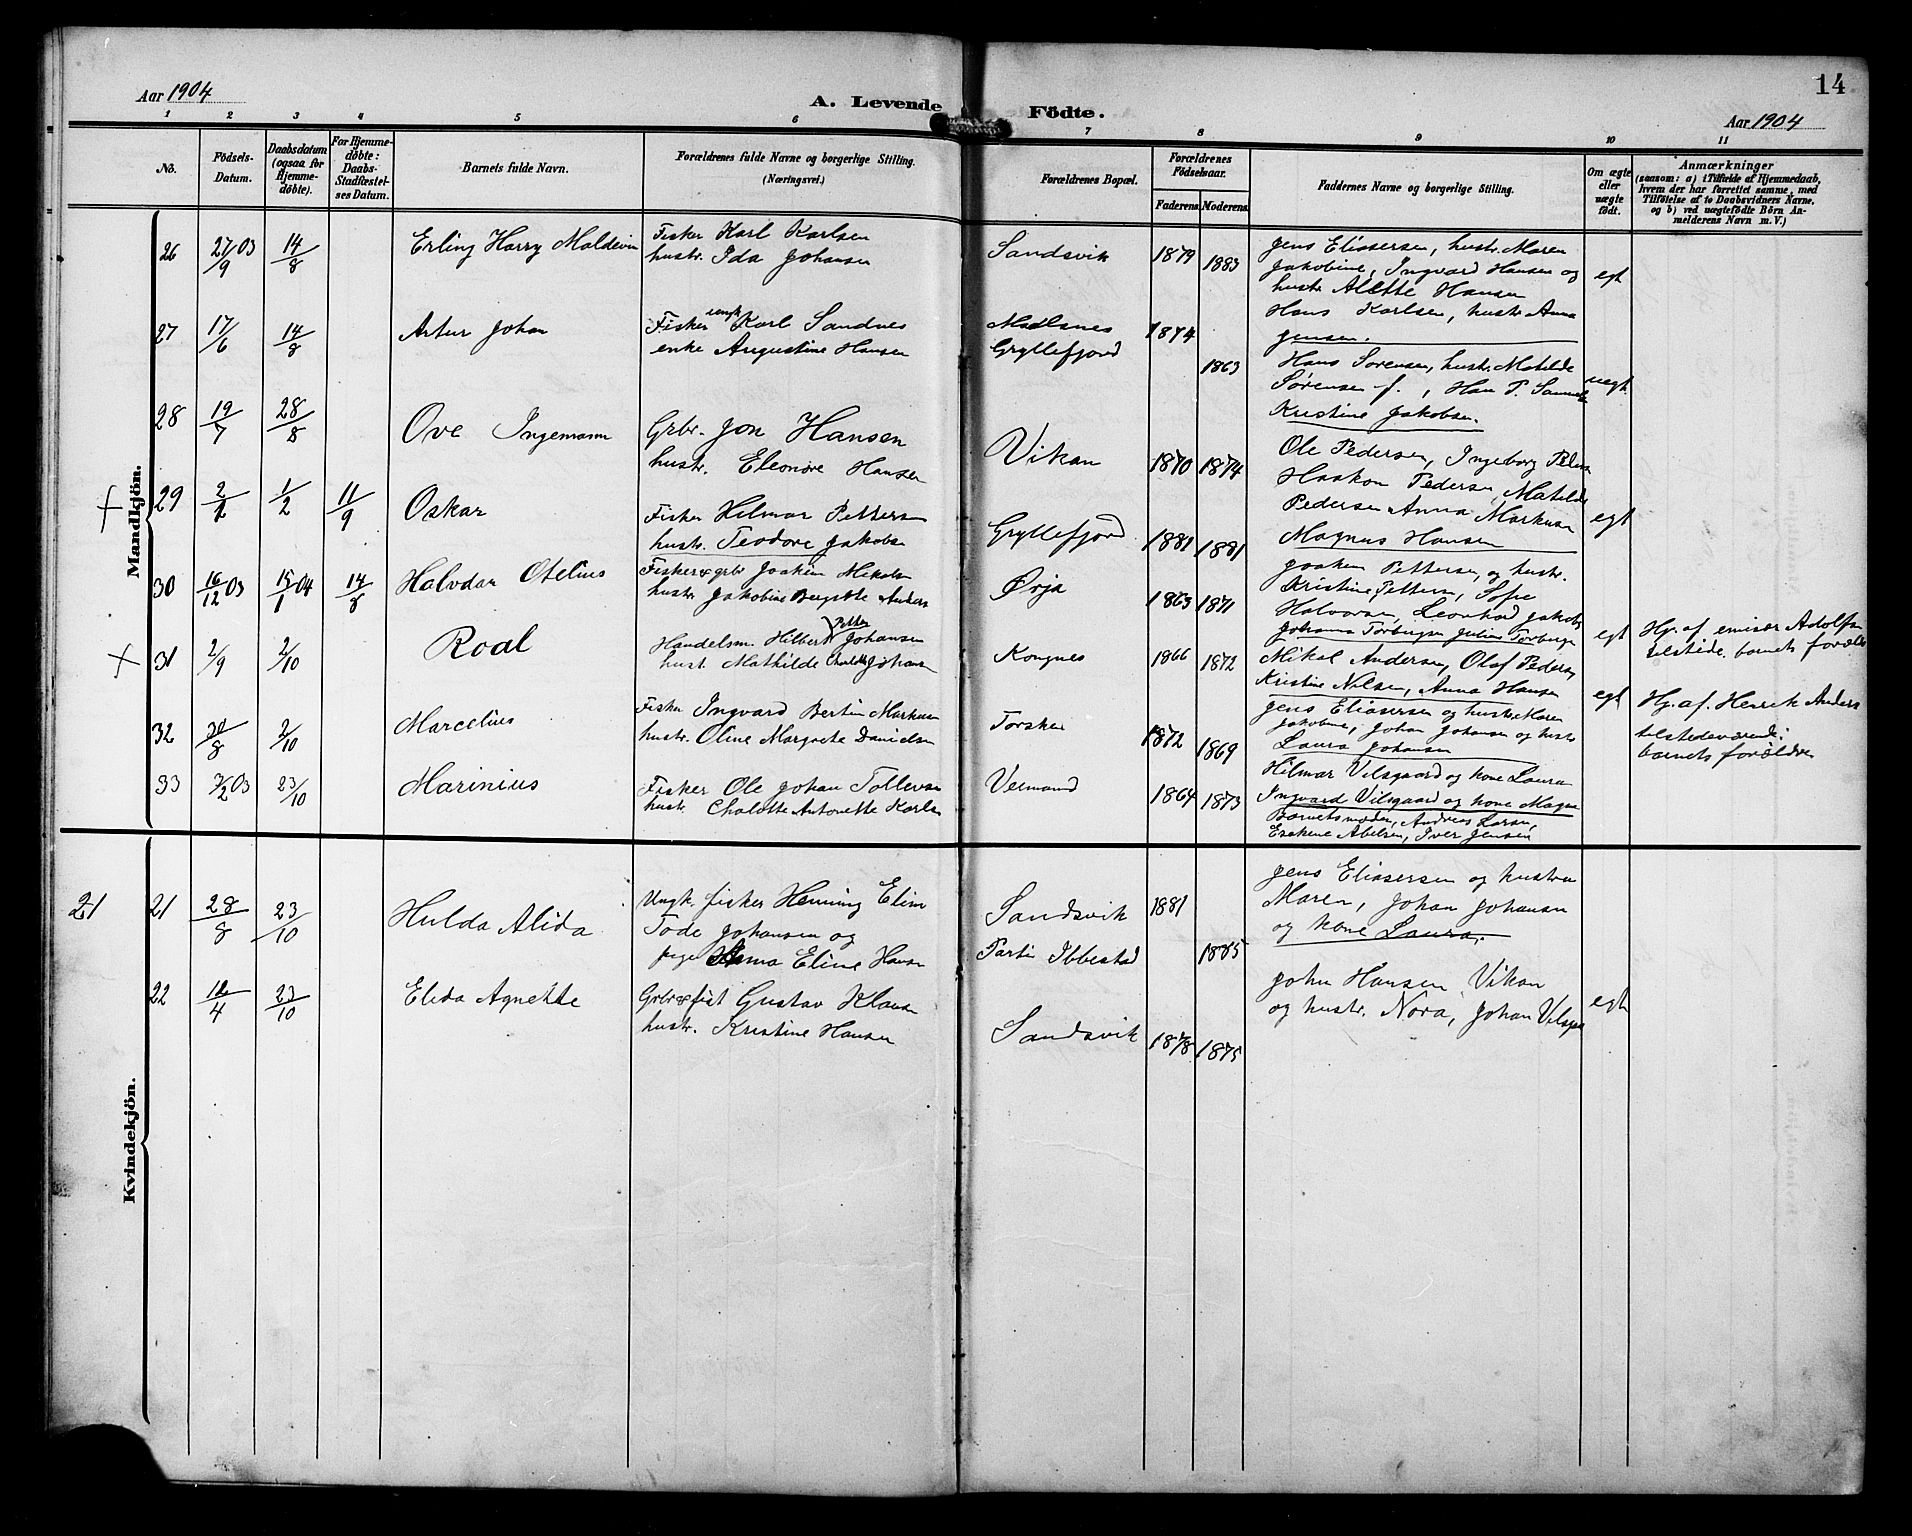 14
Aar 1904
A. Levende Födte.
Aar 1904
1 2 3 4 5 6 7 8 9 10 11
No.
Födsels-
Datum.
Daabsdatum
(ogsaa for
Hjemme-
döbte).
For Hjemme-
døbte:
Daabs-
Stadfæstel-
ses Datum.
Barnets fulde Navn.
Forældrenes fulde Navne og borgerlige Stilling.
(Næringsvei.)
Forældrenes Bopæl.
Forældrenes
Födselsaar.
Faderens Moderens.
Faddernes Navne og borgerlige Stilling.
Om ægte
eller
uægte
født.
Anmærkninger
(saasom: a) i Tilfælde af Hjemmedaab,
hvem der har forrettet samme, med
Tilföielse af to Daabsvidners Navne,
og b) ved uægtefödte Börn An-
melderens Navn m. V.)
Mandkjön.
26 27/9 03 14/8 Erling Harry Moldevin
Fisker Karl Karlsen
hustr. Ida Johansen
Sandsvik 1879 1883
Jens Eliasersen, hustr. Maren
Jakobine, Ingvard Hansen og
hustr. Alette Hansen
Hans Karlsen, hustr. Anna
Jensen.
egt
27 17/6 14/8 Artur Johan
Fisker ungk Karl Sandnes
enke Augustine Hansen
Gryllefjord
1874 1863
Hans Sörensen, hustr. Matilde
Sørensen f., Han P.
Kristine Jakobsen.
uegt.
28 19/7 28/8 Ove Ingemann
Grbr. Jon Hansen
hustr. Eleonöre Hansen
Vikan 1870 1874
Ole Pedersen, Ingeborg
Haakon Pedersen, Matilde
Pedersen Anna Markusen
Magnus Hansen
egt
+ 29 1/2 11/9 Oskar
Fisker Hilmar Petters
hustr. Teodore Jakobse
Gryllefjord 1881 1881
Joakim Pettersen, og hustr.
Kristine Petters, Sofie
Halvorsen, Leonhard Jakobs
Johanna Torbergsen Julius Torbergs
egt
Hj. af. emisær Adolfs
tilstede. barnets foreldre
30 16/12 03 15/1 04 14/8 Halvdar Otelius
Fisker & grbr Joakim Mikals
hustr Jakobine Bergitte Anders
Ørja 1863 1871
Mikal Andersen, Olaf Peders
Kristine Nilsen, Anna Hansen
egt
Hj. af. Henrik Anders
tilstedeværende:
barnets forældre
+ 31 2/9 2/10 Roal
Handelsm. Hilbert Petter Johansen
hust. Mathilde Charlotte Johans
Kongnes 1866 1872
32 30/8 2/10 Marcelius
Fisker Ingvard Bertin Markuse
hustr. Oline Margrete Danielse
Torsken 1872 1869
Jens Eliasersen og hustr. Maren
Jakobine, Johan Johansen og hustr
Laura Johansen
33 03 23/10 Marinius
Fisker Ole Johan Tollevse
hustr. Chalotte Antonette Karls
Veimand 1864 1873
Hilmar Vilsgaard og kone Laura
Ingvard Vilsgaard og kone Magna
Barnets moder, Andreas Larsen,
Esekine Abelsen, Iver Jensen
Kvindekjön.
21 21 28/8 23/10 Hulda Alida
Ungk. fisker Henning Elim
Tode Johansen og
pige Anna Eline Hansen
Sandsvik
Parti Ibbestad
1881 1885
Jens Eliasersen og hustru
Maren, Johan Johansen
og kone Laura.
22 12/4 23/10 Elida Agnethe
Grbr & fisk Gustav Klaus
hustr. Kristine Hansen
Sandsvik 1878 1875
John Hansen Vikan
og hustr. Nora, Johan Vilsgaa
egt